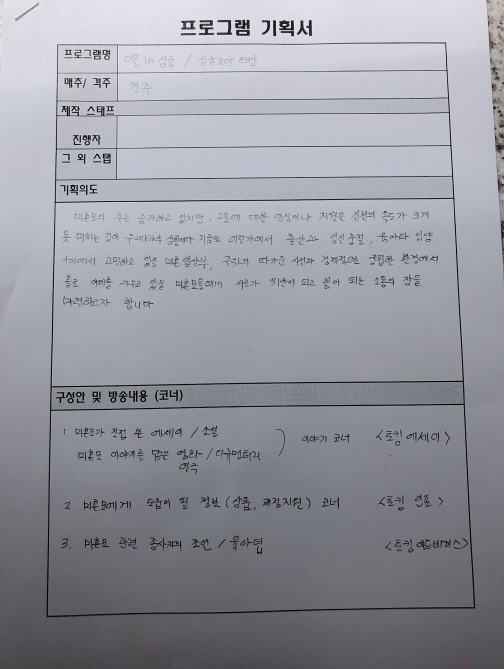 프로그램 기획서
프로그램명 in 싱글 / 싱글보다
매주/ 격주 격주
제작 스태프
진행자
그 외 스탭
기획의도
미혼모의 수는 증가하고 있지만, 그들에 대한 인식이나 지원은 실천의 속도가 크게
못 미치는 것이 우리나라의 실정이다 지금도 어딘가에서 출산과 임신중절, 육아와 입양
사이에서 고민하고 있을 미혼 임산부, 주위의 따가운 시선과 경제적으로 궁핍한 환경에서
홀로 아이를 키우고 있을 미혼모들에게 서로가 위안이 되고 힘이 되는 소통의 장을
마련하고자 합니다
구성안 및 방송내용 (코너)
1. 미혼모가 직접 쓴 에세이 / 소설
미혼모 이야기를 담은 영화 / 다큐멘터리 ) 이야기 코너 <토킹 에세이>
연극
2 미혼모에게 도움이 될 정보 (상품, 재정지원) 코너 <토킹 인포>
3. 미혼모 관련 종사자의 조언 / 육아팁 <토킹 어드바이스>